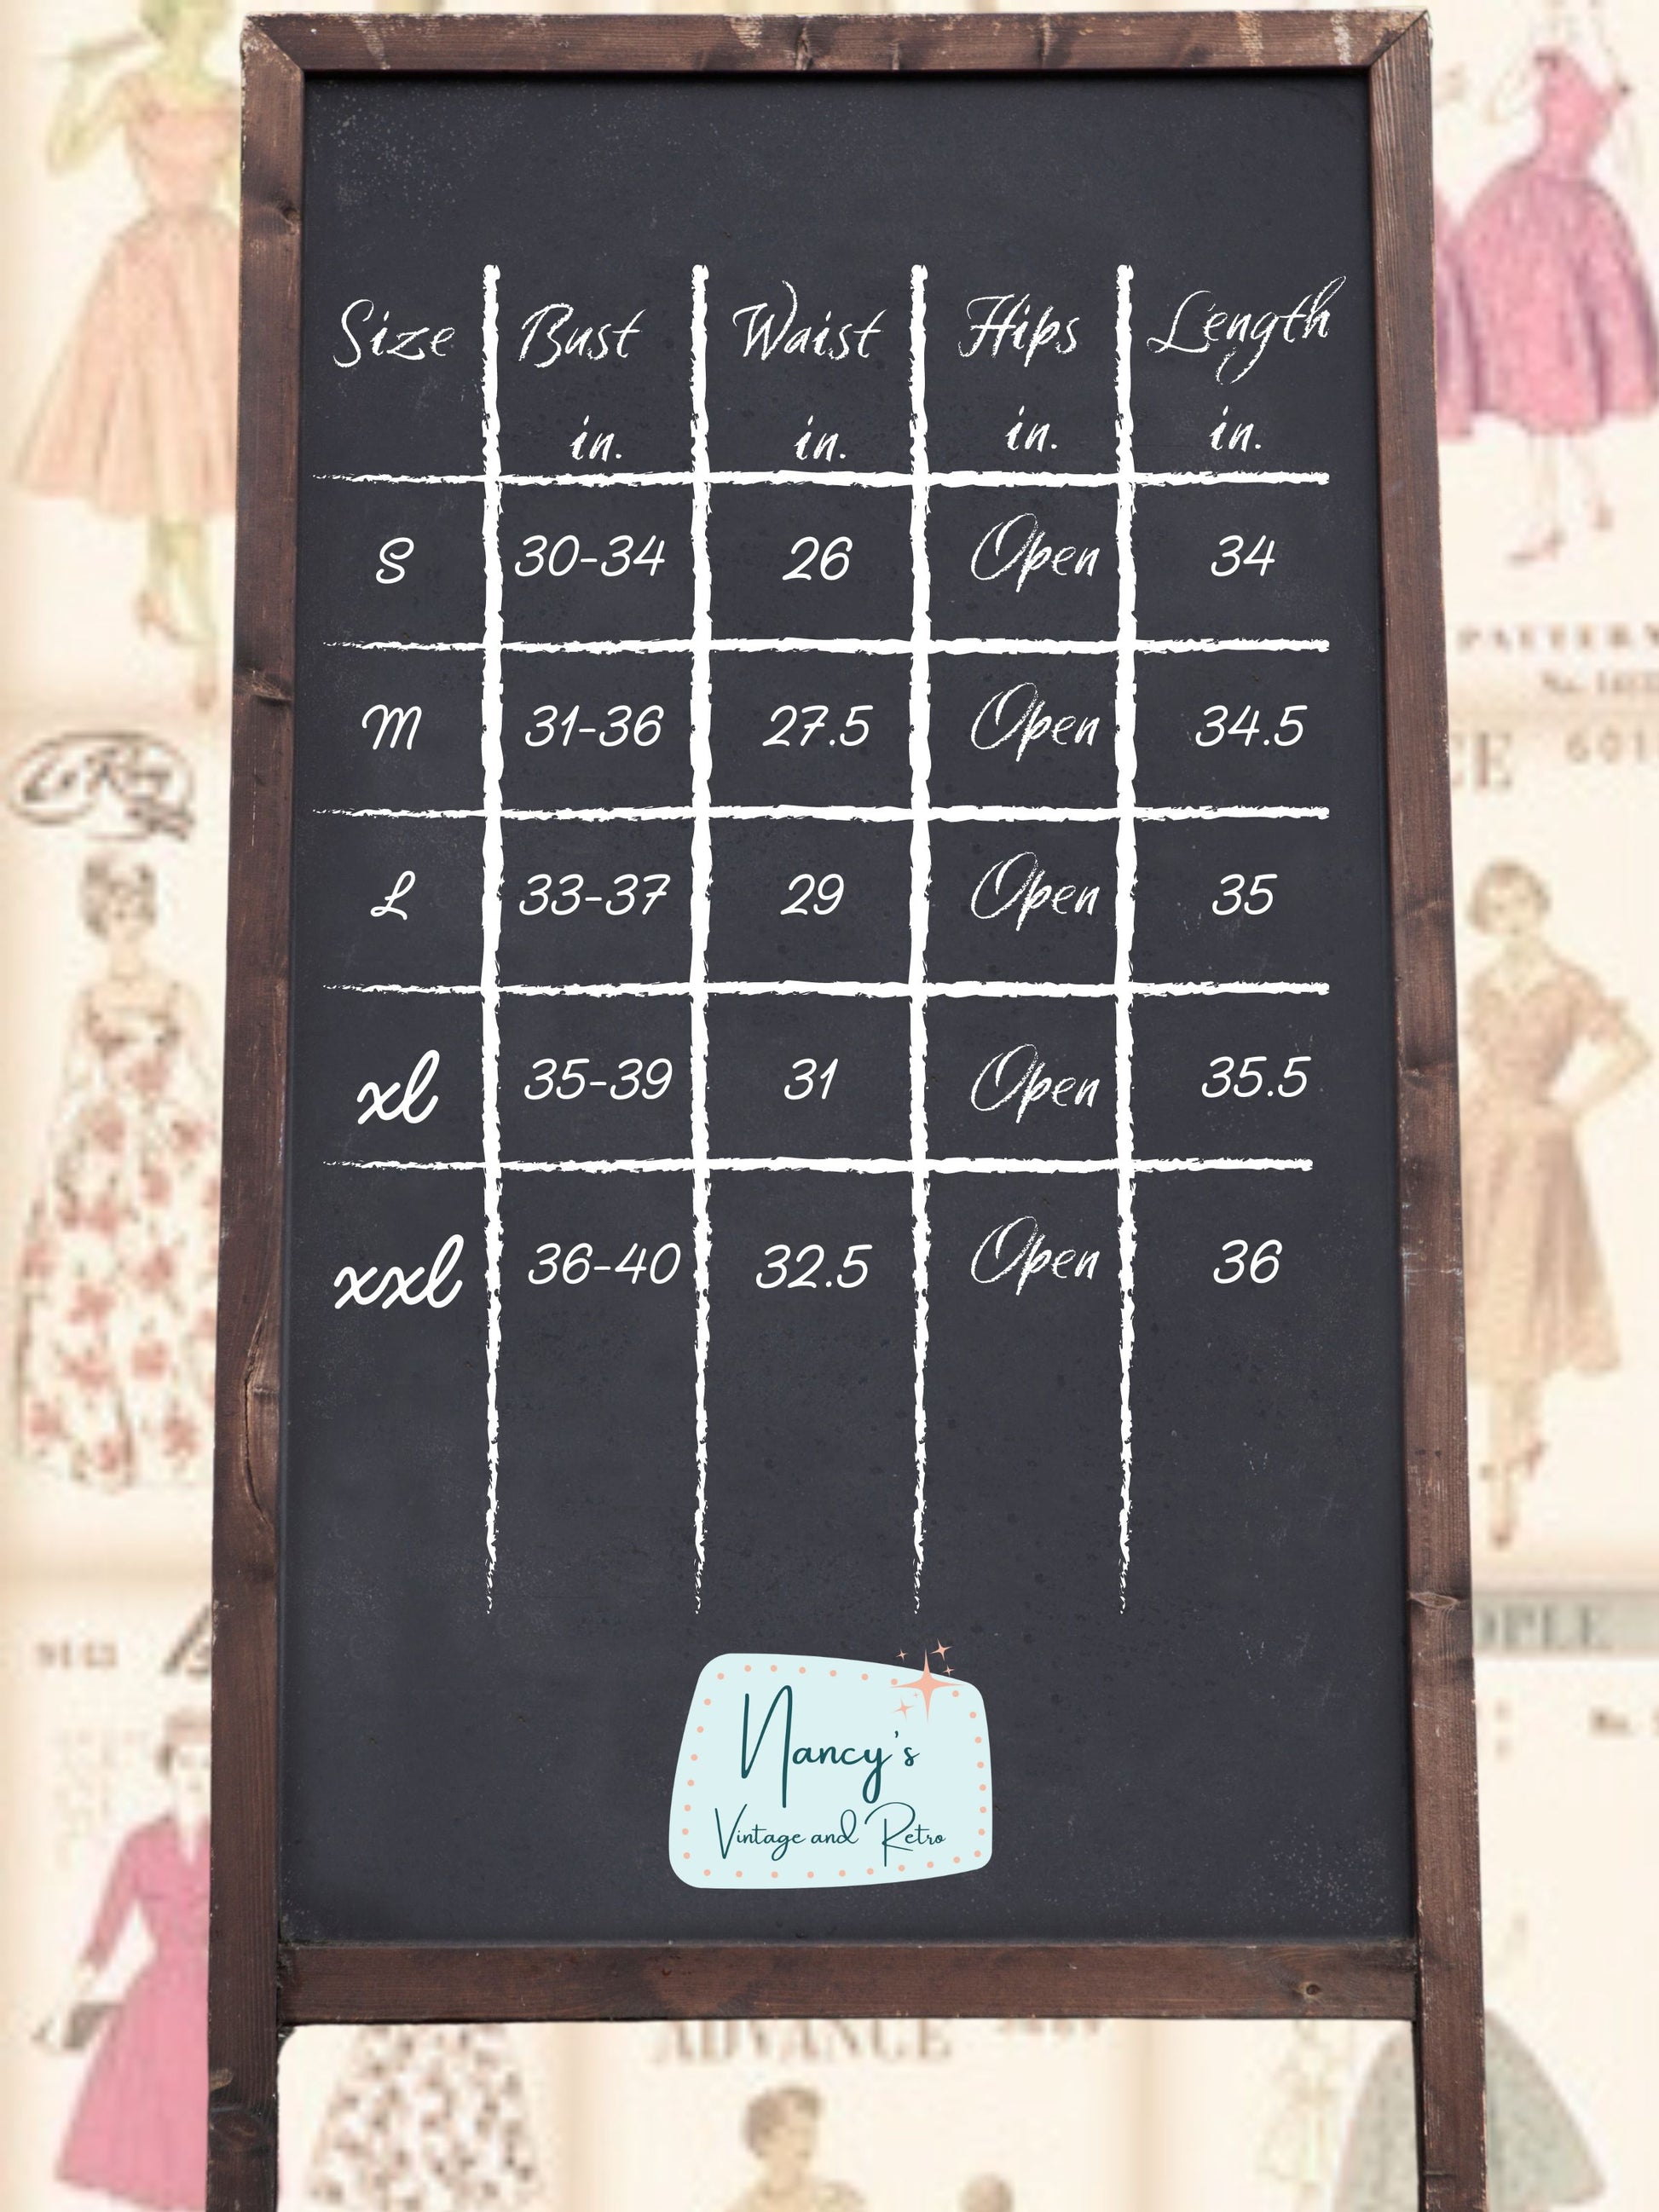 Size Bust Waist Hips Length
in. in. in. in.
S 30-34 26 Open 34
M 31-36 27.5 Open 34.5
L 33-37 29 Open 35
xl 35-39 31 Open 35.5
xxl 36-40 32.5 Open 36
Nancy's
Vintage and Retro
PATTERN
601
9142
ADVANCE